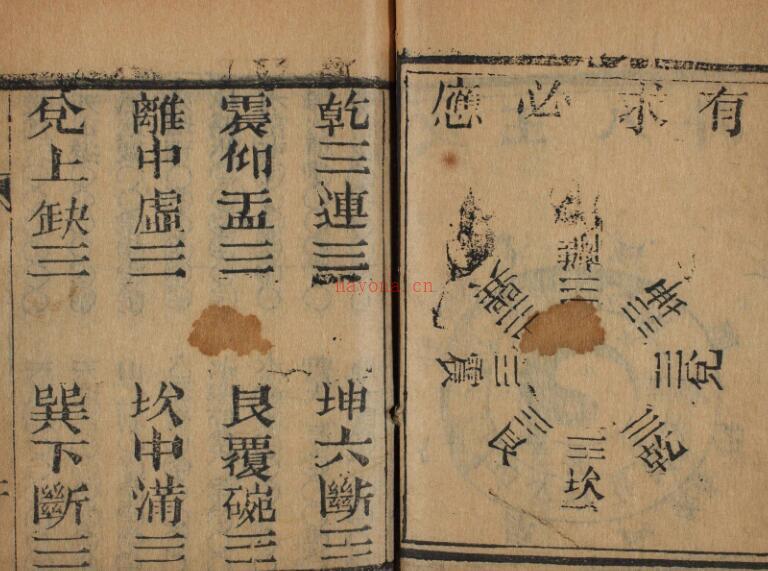 有求必應
離
坤
兌
乾
坎
艮
震
巽
乾三連☰
坤六斷☷
震仰盂☳
艮覆碗☶
離中虛☲
坎中滿☵
兌上缺☱
巽下斷☴
nayona.cn